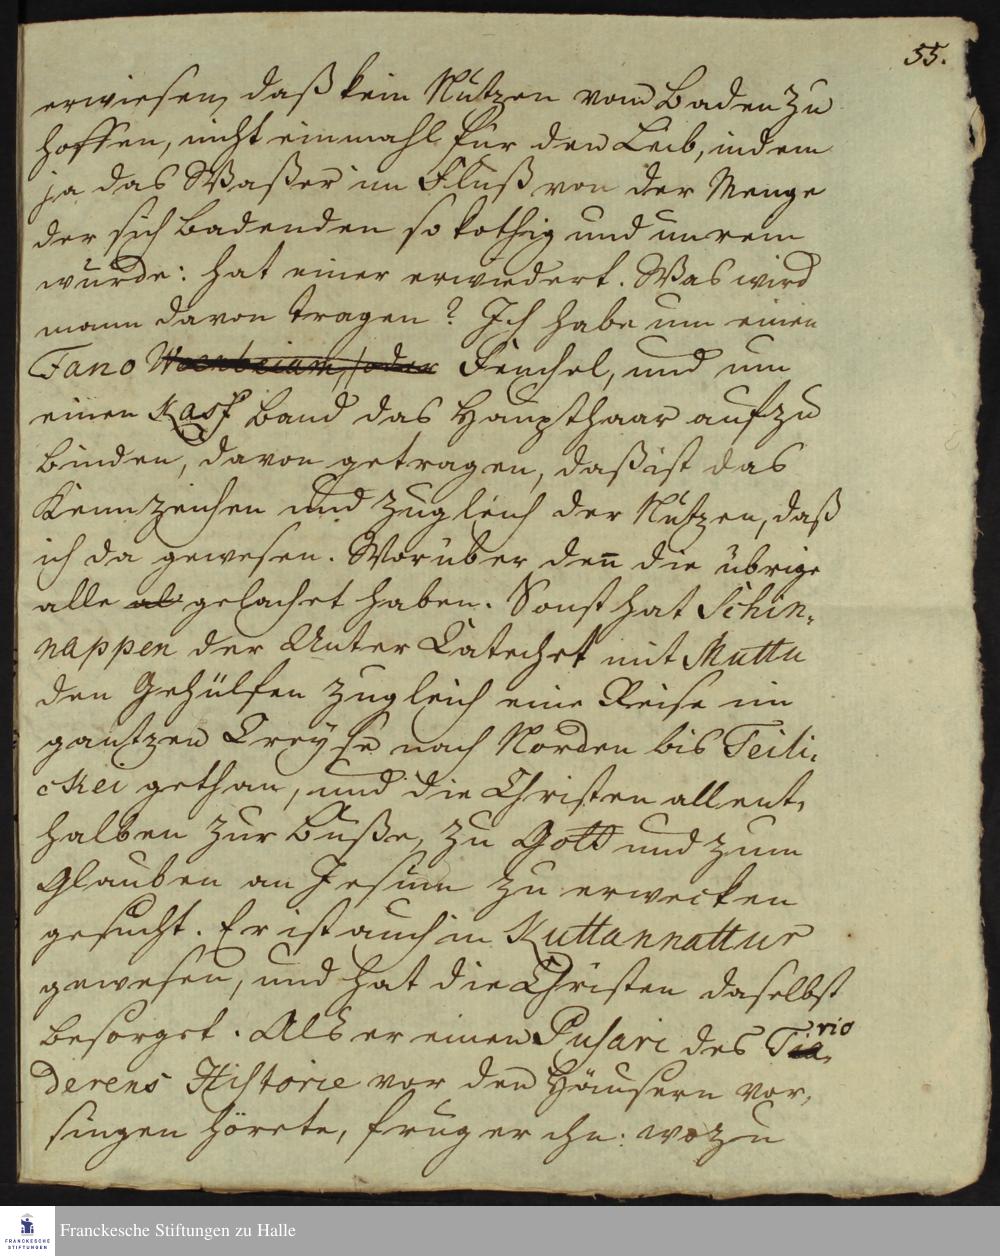 55.
erwiesen, daß kein Nutzen vom Baden zu
hoffen, nicht einmahl für den Leib, indem
ja das Waßer im Fluß von der Menge
der sich Badenden so kothig und unrein
würde: hat einer erwiedert. Was wird
mann davon tragen? Ich habe um einen
Fano oder Fenchel, und um
einen Kasf Band das Haupthaar aufzu
binden, davon getragen, daß ist das
Kennzeichen und zugleich der Nutzen, daß
ich da gewesen. Worüber den̄ die übrige
alle al gelachet haben. Sonst hat Schin,
nappen der Unter Catechet mit Muttu
den Gehülfen zugleich eine Reise im
gantzen Creyse nach Norden bis Teili,
ckei gethan, und die Christen allent,
halben zur Buße, zu Gott und zum
Glauben an Jesum zu erwecken
gesucht. Er ist auch in Kuttannattur
gewesen, und hat die Christen daselbst
besorget. Als er einen Pusari des Tirio
derens Historie vor den Häusern vor,
singen hörete, frug er ihn: wozu
Franckesche Stiftungen zu Halle
FRANCKESCHE
STIFTUNGEN